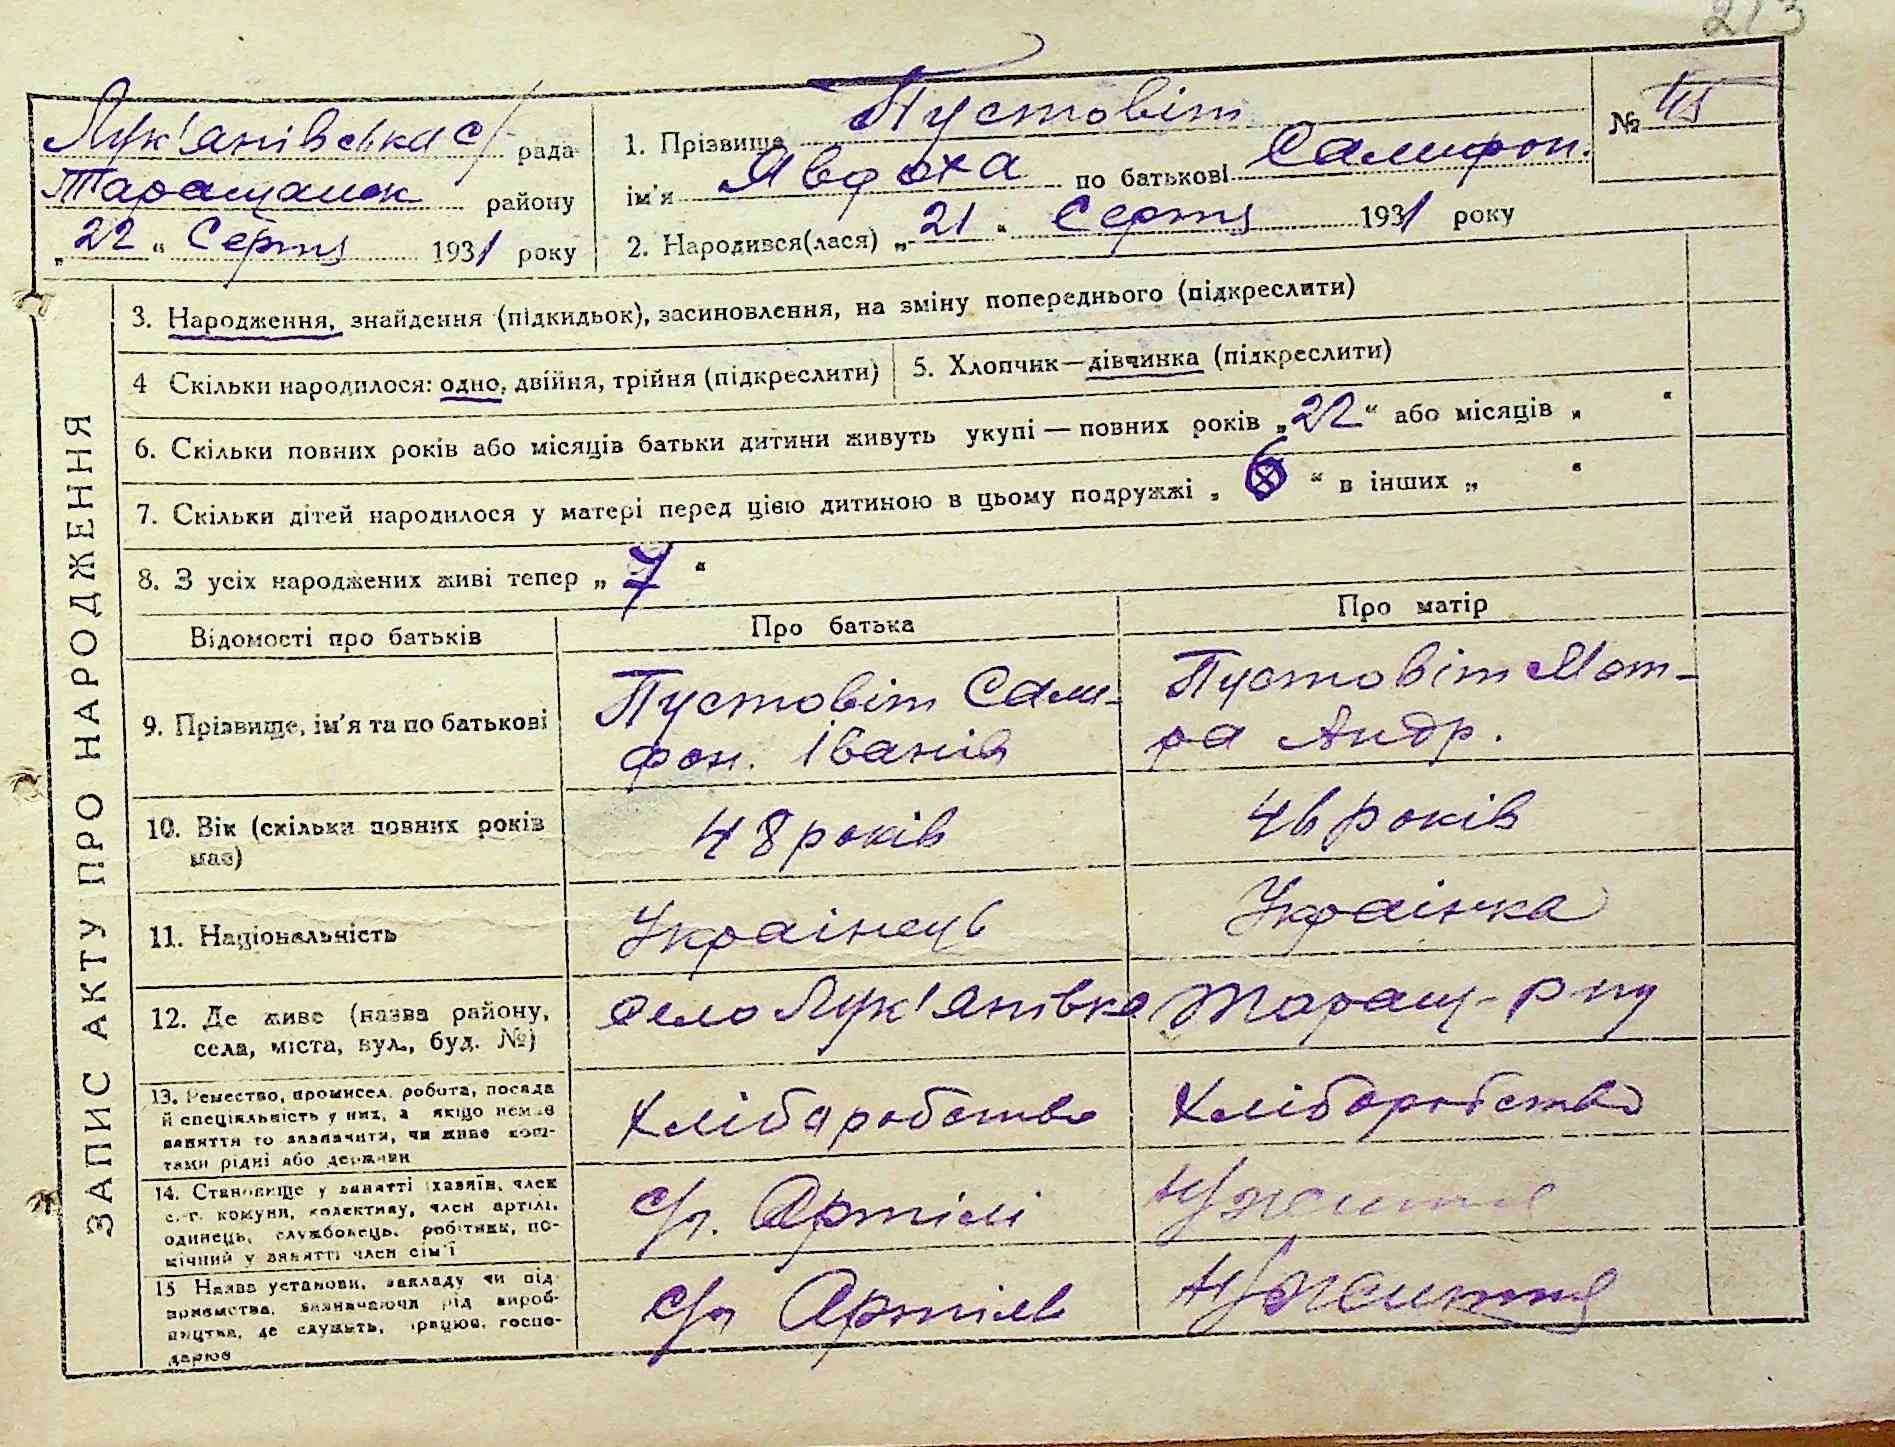 213
Лук'янівська с/ рада
Таращанськ району
„22“ Серпня 1931 року
1. Прізвище Пустовіт
ім'я Явдоха по батькові Самифон.
2. Народився(лася) „21“ Серпня 1931 року
№ 45
ЗАПИС АКТУ ПРО НАРОДЖЕННЯ
3. Народження, знайдення (підкидьок), засиновлення, на зміну попереднього (підкреслити)
4 Скільки народилося: одно, двійня, трійня (підкреслити)
5. Хлопчик—дівчинка (підкреслити)
6. Скільки повних років або місяців батьки дитини живуть укупі — повних років „22“ або місяців „ “
7. Скільки дітей народилося у матері перед цією дитиною в цьому подружжі „6“ в інших „ “
8. З усіх народжених живі тепер „7“
Відомості про батьків Про батька Про матір
9. Прізвище, ім'я та по батькові
Пустовіт Сами-
фон. Іванів
Пустовіт Мот-
ра Андр.
10. Вік (скільки повних років
має)
48 років
46 років
11. Національність
Українець
Українка
12. Де живе (назва району,
села, міста, вул., буд. №)
село Лук'янівка Таращ-р-ну
13. Ремество, промисел, робота, посада
й спеціяльність у них, а якщо немає
заняття то зазначити, чи живе кош-
тами рідні або держави
Хліборобство
Хліборобство
14. Становище у занятті (хазяїн, член
с.-г. комуни, колективу, член артілі,
одинець, службовець, робітник, по-
мічний у занятті член сім'ї
с/г. Артілі
15 Назва установи, закладу чи під-
приємства, зазначаючи рід вироб-
ництва, де служить, працює, госпо-
дарює
с/г Артіль